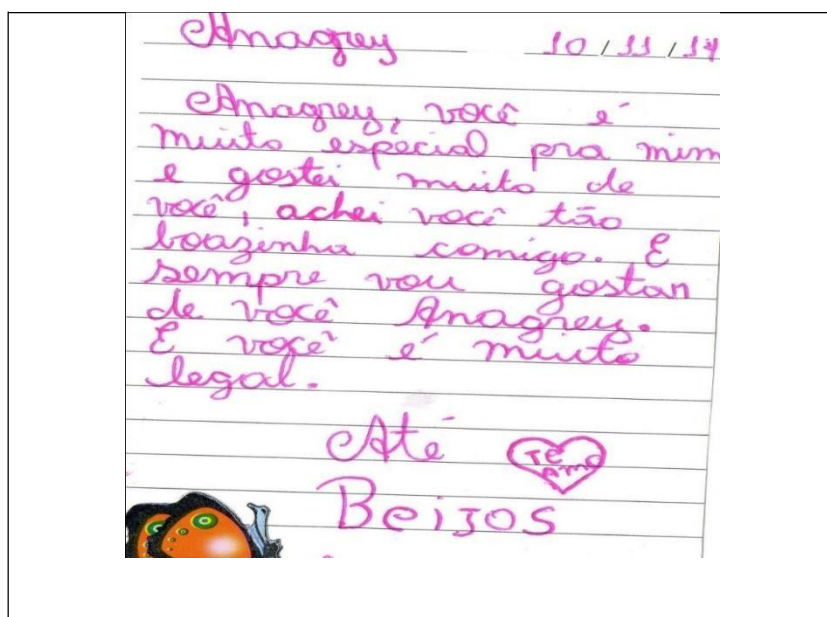 Anagrey 10/11/14
Anagrey, você é
muito especial pra mim
e gostei muito de
você, achei você tão
boazinha comigo. E
sempre vou gostar
de você Anagrey.
E você é muito
legal.
Até TE AMO
Beijos